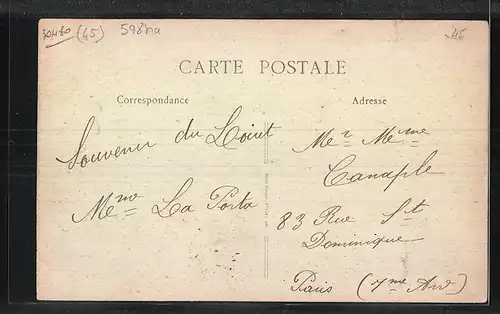 (45) 598ha 45
CARTE POSTALE
Correspondance
Souvenir du Loiret
Mme La Porta
Adresse
Mer Meme
Canaple
83 Rue St
Dominique
Paris (7me Arr)